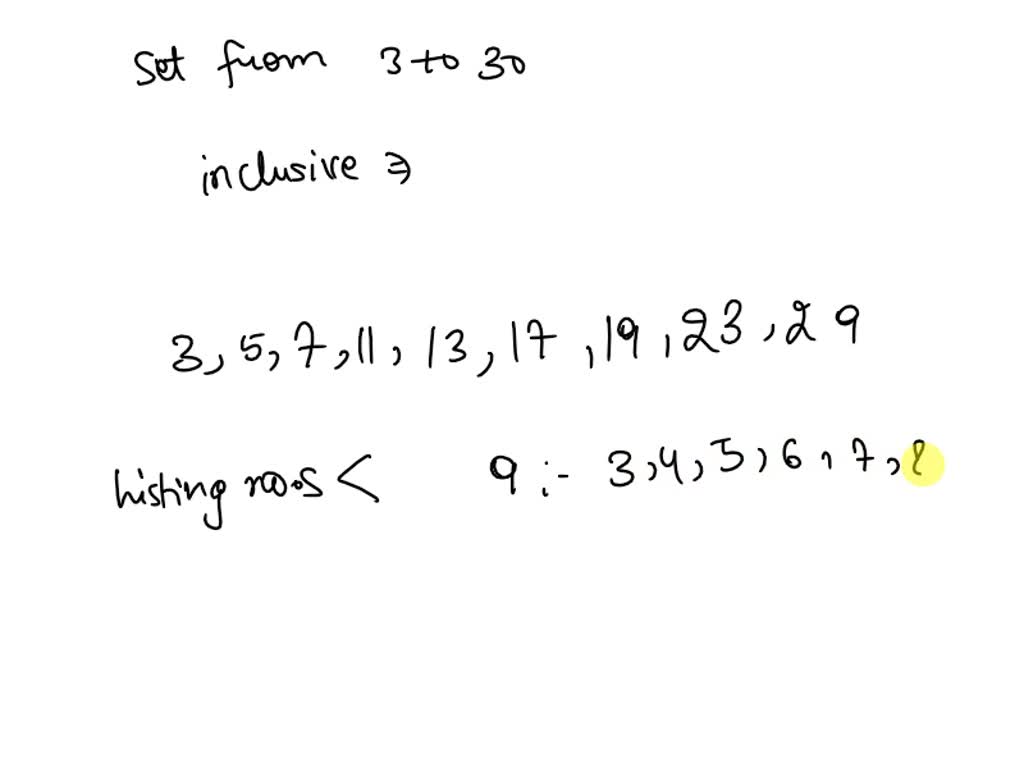 Set from 3 to 30
inclusive ⇒
3, 5, 7, 11, 13, 17, 19, 23, 29
listing no.s < 9 :- 3, 4, 5, 6, 7, 8